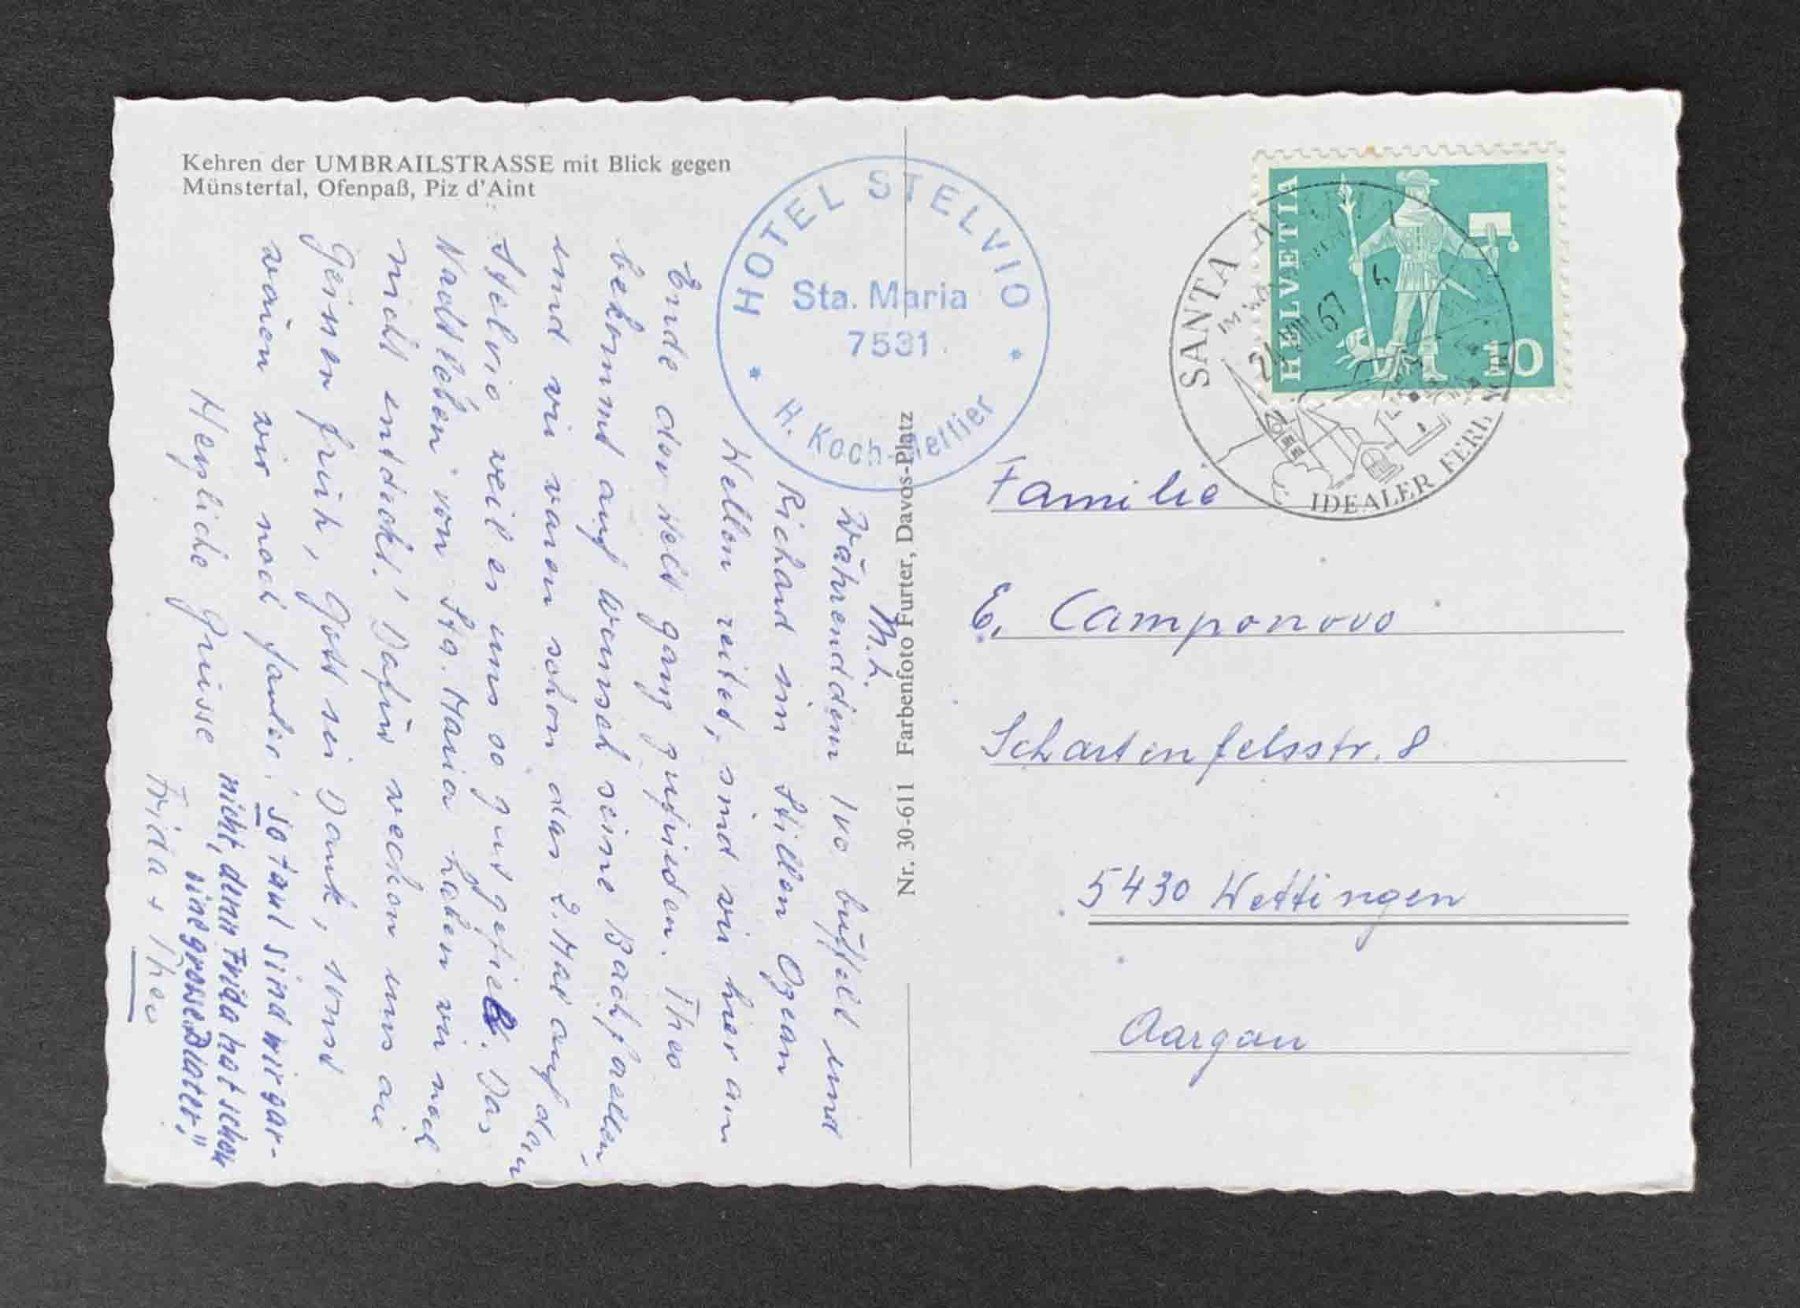 Kehren der UMBRAILSTRASSE mit Blick gegen
Münstertal, Ofenpaß, Piz d'Aint
HOTEL STELVIO
Sta. Maria
7531
H. Koch-
Nr. 30-611 Farbenfoto Furter, Davos-Platz
HELVETIA
10
SANTA
24. VIII. 67
IDEALER
M. L.
Währenddem Ivo büffelt und
Richard im stillen Ozean
Wellen reitet, sind wir hier am
Ende der Welt ganz zufrieden. Theo
bekommt auf Wunsch seine Bachforellen,
und wir waren schon das 2. Mal auf dem
Stelvio weil es uns so gut gefiel. Das
Nachtleben von Sta. Maria haben wir noch
nicht entdeckt! Dafür wecken uns die
Geissen früh, Gott sei Dank, sonst
wären wir noch fauler. So faul sind wir gar-
nicht, denn Frida hat schon
eine grosse Blatter,"
Herzliche Grüsse
Frida + Theo
Familie
E. Camponovo
Schartenfelsstr. 8
5430 Wettingen
Aargau